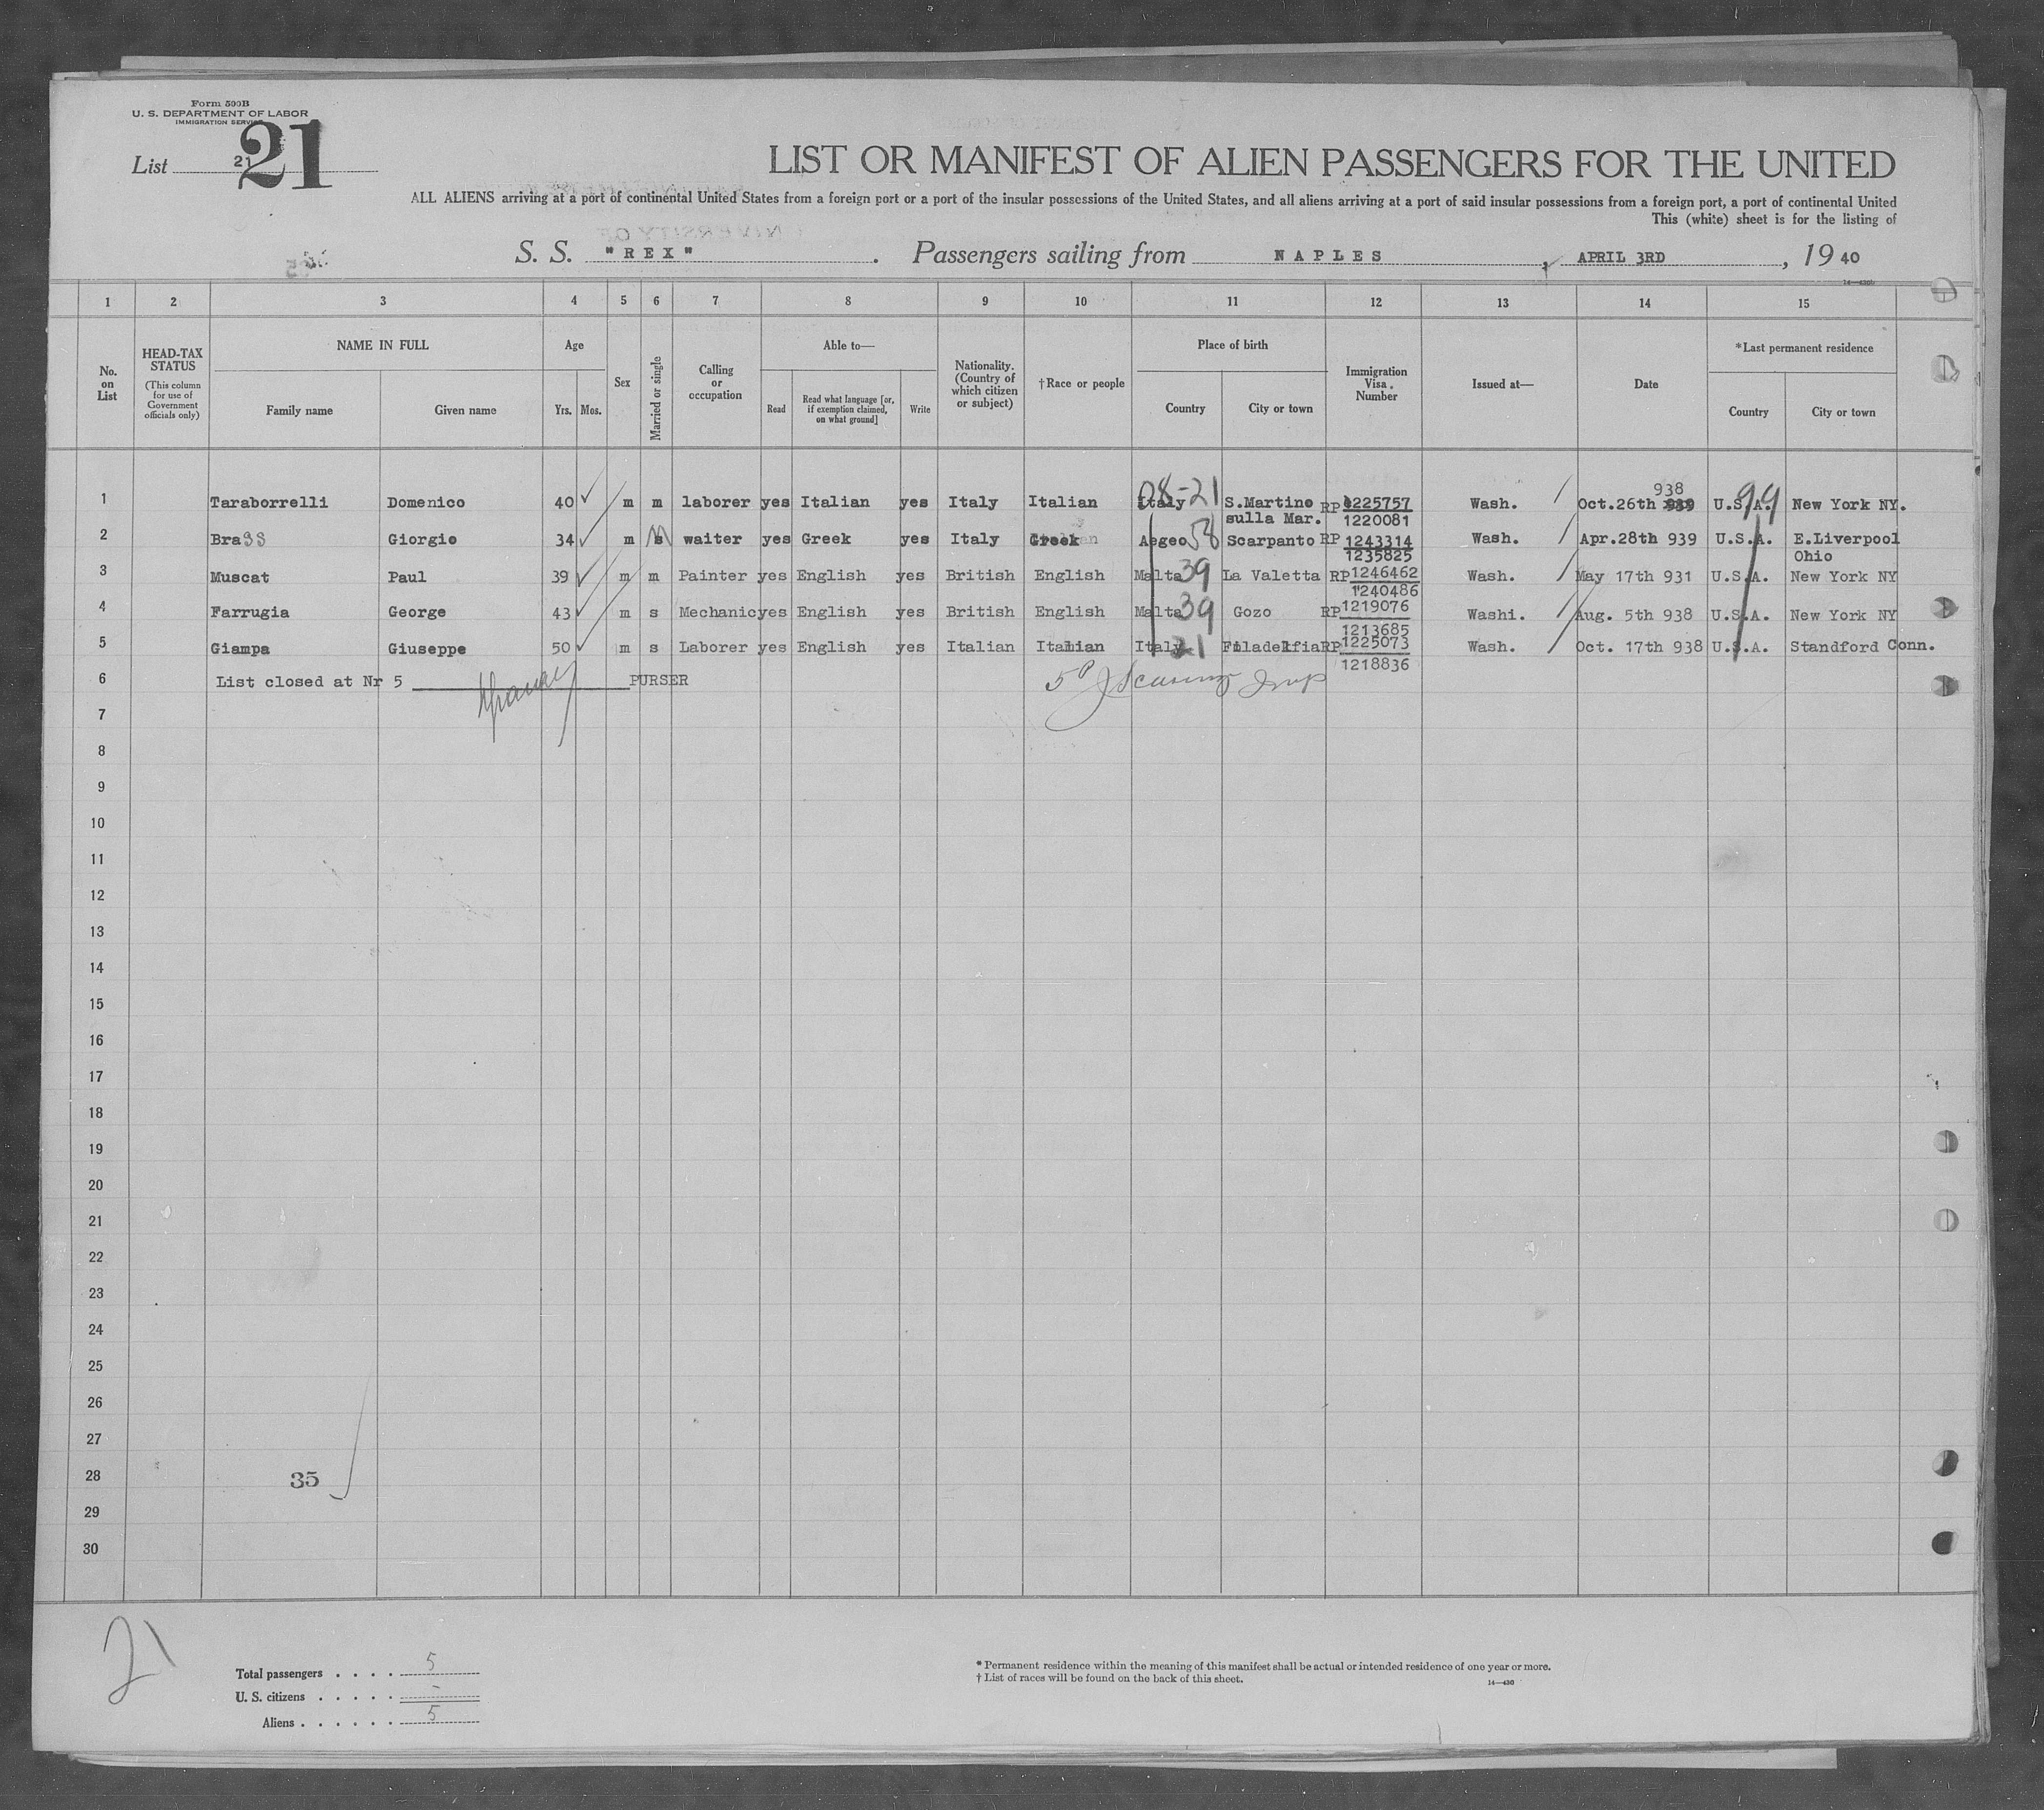 Form 500B
U. S. DEPARTMENT OF LABOR
IMMIGRATION SERVICE
List 21 21
LIST OR MANIFEST OF ALIEN PASSENGERS FOR THE UNITED
ALL ALIENS arriving at a port of continental United States from a foreign port or a port of the insular possessions of the United States, and all aliens arriving at a port of said insular possessions from a foreign port, a port of continental United
This (white) sheet is for the listing of
S. S. "REX". Passengers sailing from NAPLES, APRIL 3RD, 19 40
1 2 3 4 5 6 7 8 9 10 11 12 13 14 15
No. on List
HEAD-TAX STATUS (This column for use of Government officials only)
NAME IN FULL Family name Given name
Age Yrs. Mos.
Sex
Married or single
Calling or occupation
Able to— Read Read what language [or, if exemption claimed, on what ground] Write
Nationality. (Country of which citizen or subject)
†Race or people
Place of birth Country City or town
Immigration Visa Number
Issued at—
Date
*Last permanent residence Country City or town
938
1 Taraborrelli Domenico 40 m m laborer yes Italian yes Italy Italian Italy 08-21 S.Martino RP 1225757 Wash. Oct.26th 939 U.S.A. 99 New York NY.
sulla Mar. 1220081
2 Brass Giorgio 34 m M waiter yes Greek yes Italy Greek Aegeo 58 Scarpanto RP 1243314 Wash. Apr.28th 939 U.S.A. E.Liverpool
1235825 Ohio
3 Muscat Paul 39 m m Painter yes English yes British English Malta 39 La Valetta RP 1246462 Wash. May 17th 931 U.S.A. New York NY
1240486
4 Farrugia George 43 m s Mechanic yes English yes British English Malta 39 Gozo RP 1219076 Washi. Aug. 5th 938 U.S.A. New York NY
1213685
5 Giampa Giuseppe 50 m s Laborer yes English yes Italian Italian Italy 21 Filadelfia RP 1225073 Wash. Oct. 17th 938 U.S.A. Standford Conn.
1218836
6 List closed at Nr 5 PURSER
7
8
9
10
11
12
13
14
15
16
17
18
19
20
21
22
23
24
25
26
27
28 35
29
30
21
Total passengers . . . . 5
U. S. citizens . . . . . -
Aliens . . . . . . 5
* Permanent residence within the meaning of this manifest shall be actual or intended residence of one year or more.
† List of races will be found on the back of this sheet.
14—430